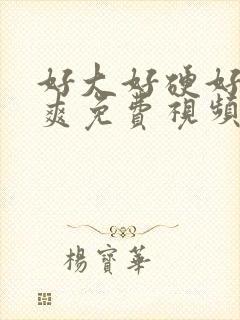 好大好硬好
爽免費視頻
楊寶華